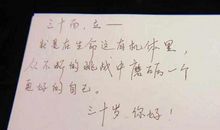 三十而，立——
就是在生命这有机体里，
从不断的挑战中磨砺一个
更好的自己。
三十岁，你好！